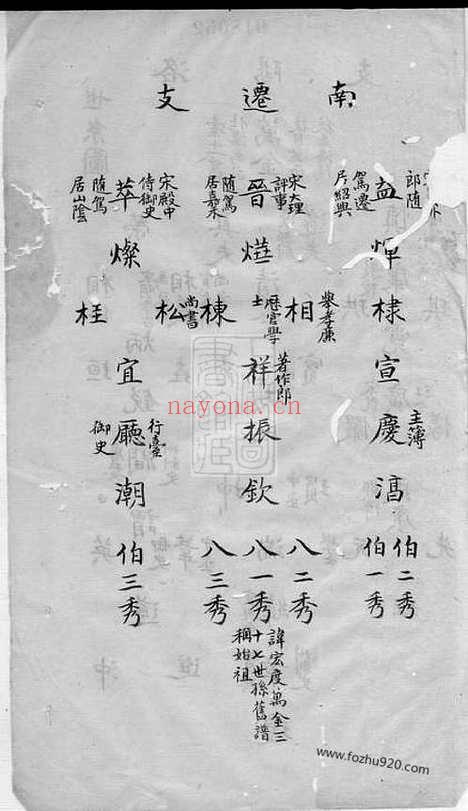 南遷支
益
郎隨
駕遷
居紹興
煇
棣
宣
慶
主簿
滈
伯二秀
伯一秀
晉
宋大理
評事
隨駕
居嘉禾
相
舉孝廉
歷官學
士
棟
尚書
祥
著作郎
振
欽
八二秀
八一秀
諱宏度萬全三
十七世孫舊譜
稱始祖
八三秀
萃
宋殿中
侍御史
隨駕
居山陰
燦
松
枉
宜
廳
行臺
御史
潮
伯三秀
nayona.cn
www.fozhu920.com